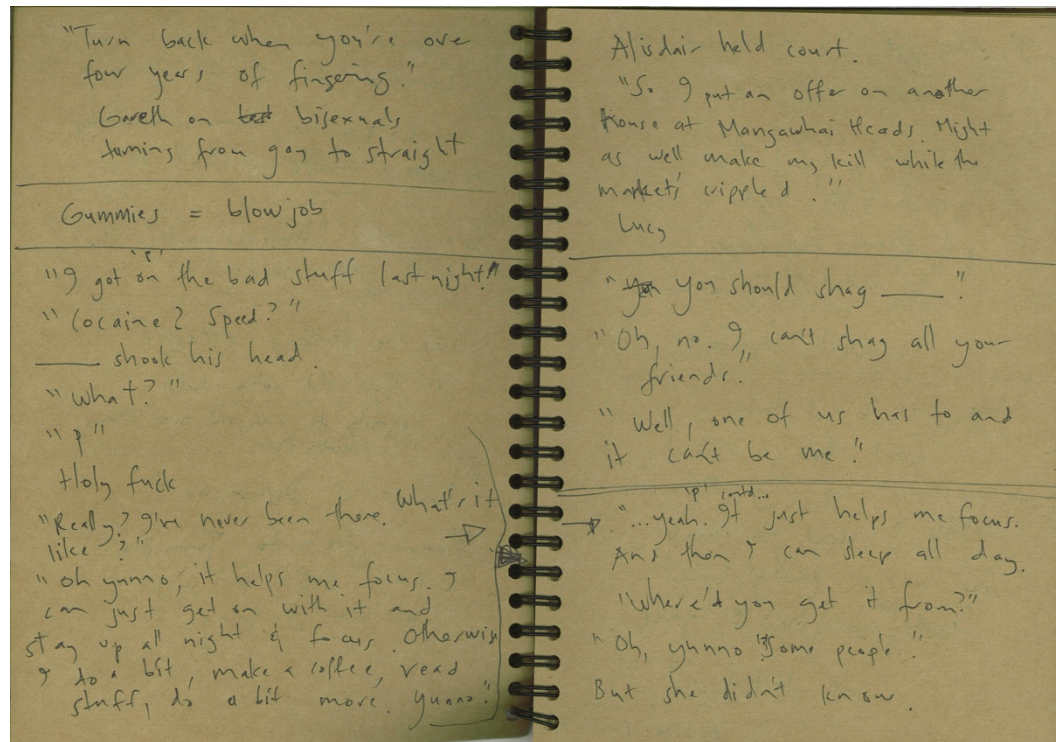 "Turn back when you're over
four years of fingering."
Gareth on bisexuals
turning from gay to straight
Gummies = blowjob
'P'
"I got on the bad stuff last night!"
"Cocaine? Speed?"
—— shook his head.
"What?"
"P"
Holy fuck
"Really? I've never been there. What's it
like?"
"Oh yunno, it helps me focus. I
can just get on with it and
stay up all night & focus. Otherwise
I do a bit, make a coffee, read
stuff, do a bit more. Yunno."
Alisdair held court.
"So I put an offer on another
house at Mangawhai Heads. Might
as well make my kill while the
market's crippled."
Lucy
"you should shag ——."
"Oh, no. I can't shag all your
friends."
"Well, one of us has to and
it can't be me."
'P' contd...
"...yeah. It just helps me focus.
And then I can sleep all day.
"Where'd you get it from?"
"Oh, yunno some people."
But she didn't know.